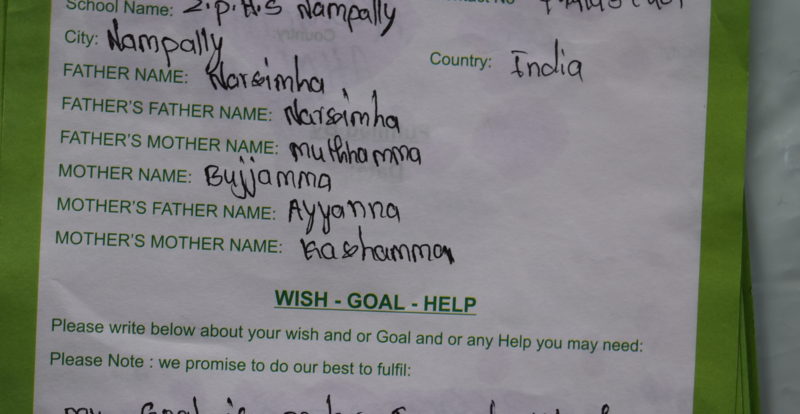 School Name: Z.P.H.S Nampally
City: Nampally
Country: India
FATHER NAME: Narsimha
FATHER'S FATHER NAME: Narsimha
FATHER'S MOTHER NAME: muthhamma
MOTHER NAME: Bujjamma
MOTHER'S FATHER NAME: Ayyanna
MOTHER'S MOTHER NAME: Kashamma
WISH - GOAL - HELP
Please write below about your wish and or Goal and or any Help you may need:
Please Note : we promise to do our best to fulfil:
my Goal is